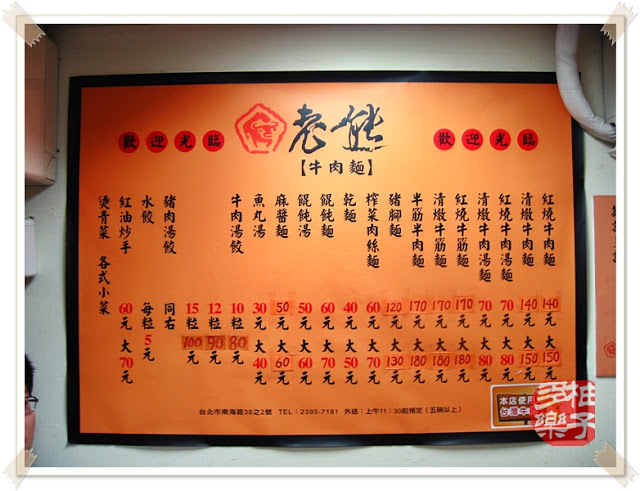 歡迎光臨
老熊
歡迎光臨
【牛肉麵】
紅燒牛肉麵 140元 大150元
清燉牛肉麵 140元 大150元
紅燒牛肉湯麵 70元 大80元
清燉牛肉湯麵 70元 大80元
紅燒牛筋麵 170元 大180元
清燉牛筋麵 170元 大180元
半筋半肉麵 170元 大180元
豬腳麵 120元 大130元
榨菜肉絲麵 60元 大70元
乾麵 40元 大50元
餛飩麵 60元 大70元
餛飩湯 50元 大60元
麻醬麵 50元 大60元
魚丸湯 30元 大40元
牛肉湯餃 10粒 80元
12粒 90元
15粒 100元
豬肉湯餃 同右
水餃 每粒5元
紅油炒手 60元 大70元
燙青菜 各式小菜
台北市南海路38之2號 TEL：2395-7181 外送：上午11：30前預定（五碗以上）
本店使用
台灣牛
柚子